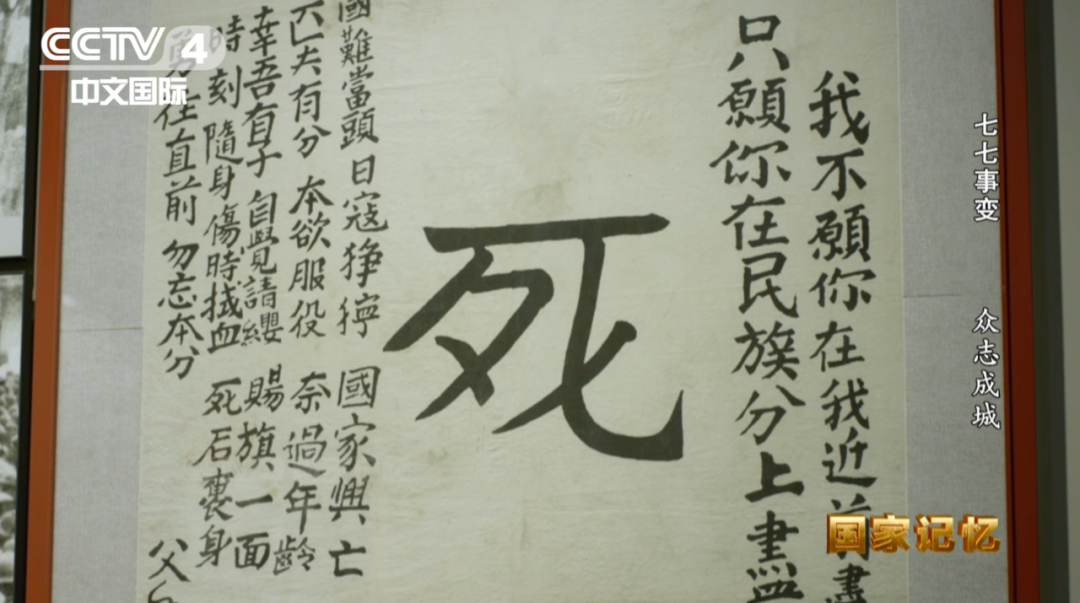 CCTV 4
中文国际
七七事变 众志成城
我不願你在我近前盡
只願你在民族分上盡
死
國難當頭 日寇猙獰 國家興亡
匹夫有分 本欲服役 奈過年齡
幸吾有子 自覺請纓 賜旗一面
時刻隨身 傷時拭血 死后裹身
勇往直前 勿忘本分
父
国家记忆